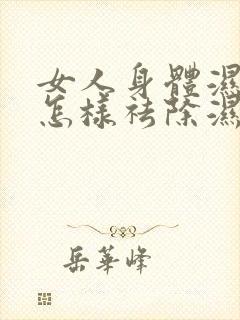 女人身體濕
怎樣祛除濕
岳華峰